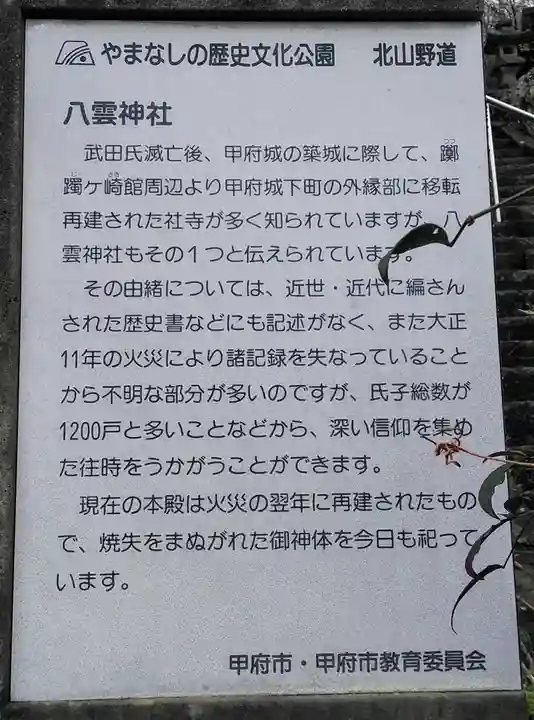 やまなしの歴史文化公園　北山野道
八雲神社
武田氏滅亡後、甲府城の築城に際して、躑
躅ケ崎館周辺より甲府城下町の外縁部に移転
再建された社寺が多く知られていますが、八
雲神社もその1つと伝えられています。
その由緒については、近世・近代に編さん
された歴史書などにも記述がなく、また大正
11年の火災により諸記録を失なっていること
から不明な部分が多いのですが、氏子総数が
1200戸と多いことなどから、深い信仰を集め
た往時をうかがうことができます。
現在の本殿は火災の翌年に再建されたもの
で、焼失をまぬがれた御神体を今日も祀って
います。
甲府市・甲府市教育委員会